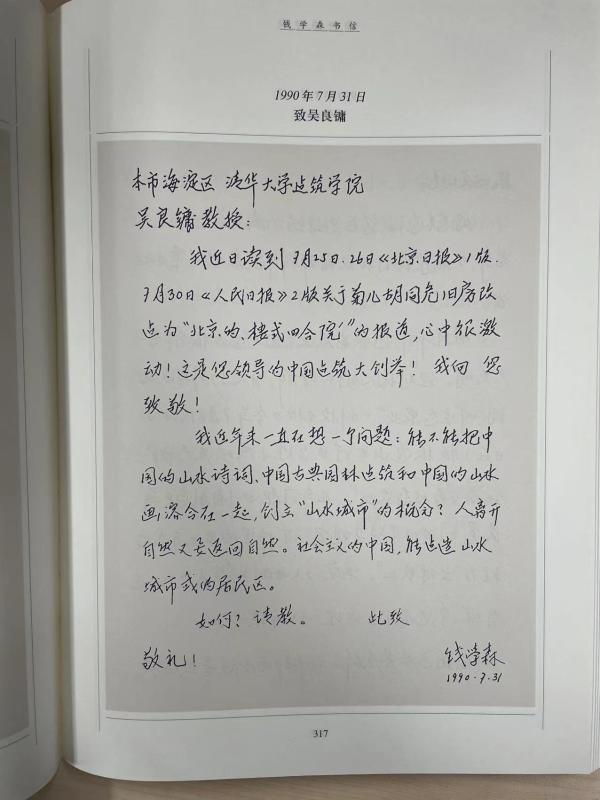 钱学森书信
1990年7月31日
致吴良镛
本市海淀区 清华大学建筑学院
吴良镛教授：
我近日读到7月25日、26日《北京日报》1版、
7月30日《人民日报》2版关于菊儿胡同危旧房改
建为“北京的‘楼式四合院’”的报道，心中很激
动！这是您领导的中国建筑大创举！ 我向 您
致敬！
我近年来一直在想一个问题：能不能把中
国的山水诗词、中国古典园林建筑和中国的山水
画溶合在一起，创立“山水城市”的概念？人离开
自然又要返回自然。社会主义的中国，能建造山水
城市式的居民区。
如何？请教。 此致
敬礼！
钱学森
1990.7.31
317